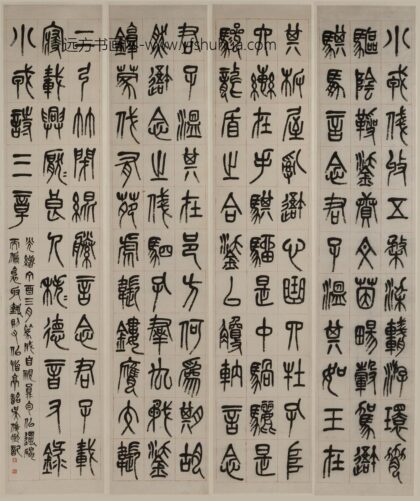 小戎俴收五楘梁輈游環脅
驅陰靷鋈續文茵暢轂駕我
騏馵言念君子溫其如玉在
其板屋亂我心曲四牡孔阜
六轡在手騏駵是中騧驪是
驂龍盾之合鋈以觼軜言念
君子溫其在邑方何為期胡
然我念之俴駟孔羣厹矛鋈
錞蒙伐有苑虎韔鏤膺交韔
二弓竹閉緄縢言念君子載
寢載興厭良人秩德音錄
小戎詩三章
远方书画